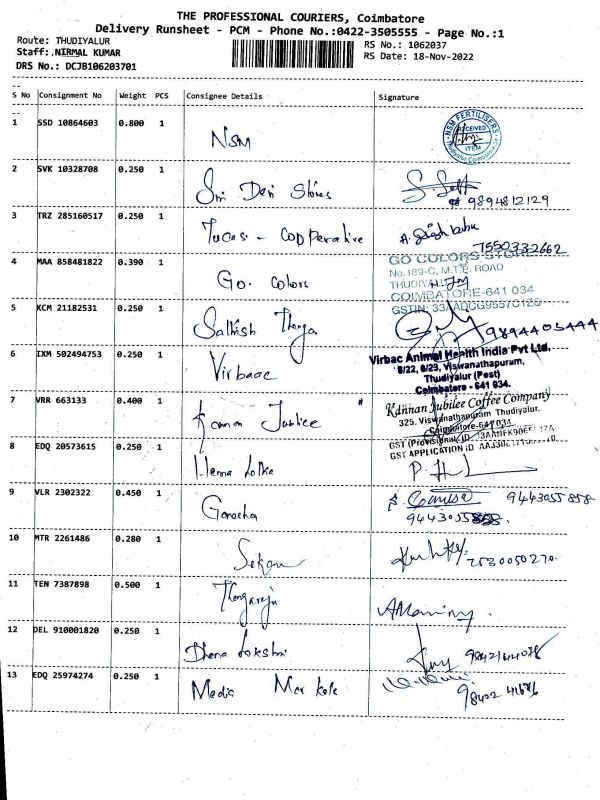 THE PROFESSIONAL COURIERS, Coimbatore
Delivery Runsheet - PCM - Phone No.:0422-3505555 - Page No.:1
Route: THUDIYALUR
RS No.: 1062037
Staff:.NIRMAL KUMAR
RS Date: 18-Nov-2022
DRS No.: DCJB106203701
S No Consignment No Weight PCS Consignee Details Signature
1 SSD 10864603 0.800 1 NSM
NSM FERTILISERS
RECEIVED
ITEM
2 SVK 10328708 0.250 1 Sri Devi Stores
9894812129
3 TRZ 285160517 0.250 1 Tucas - Cooperative
7550332662
4 MAA 858481822 0.390 1 Go. Colors
GO COLORS STORE
No.189-C, M.T.P. ROAD
THUDIYALUR
COIMBATORE-641 034
GSTIN: 
5 KCM 21182531 0.250 1 Sathish Thanga
9894405444
6 IXM 502494753 0.250 1 Virbaac
Virbac Animal Health India Pvt Ltd.
8/22, 8/23, Viswanathapuram,
Thudiyalur (Post)
Coimbatore - 641 034.
7 VRR 663133 0.400 1 Kanna Jubilee "
Kannan Jubilee Coffee Company
325. Viswanathapuram Thudiyalur.
Coimbatore-641034
GST (Provisional) ID
GST APPLICATION ID
8 EDQ 20573615 0.250 1 Hema Latha
9 VLR 2302322 0.450 1 Ganesha
Ganesa 9443055858
9443055858.
10 MTR 2261486 0.280 1 Sekar
7530050270
11 TEN 7387898 0.500 1 Thangaraju
12 DEL 910001820 0.250 1 Dhana Lakshmi
13 EDQ 25974274 0.250 1 Media Mar kate
98422 41676